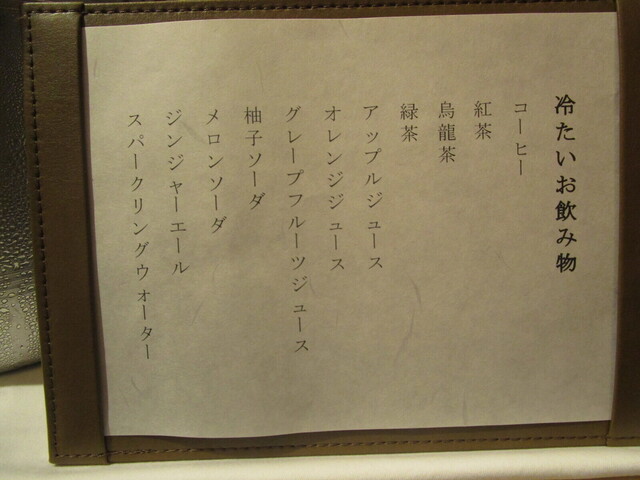 冷たいお飲み物
コーヒー
紅茶
烏龍茶
緑茶
アップルジュース
オレンジジュース
グレープフルーツジュース
柚子ソーダ
メロンソーダ
ジンジャーエール
スパークリングウォーター